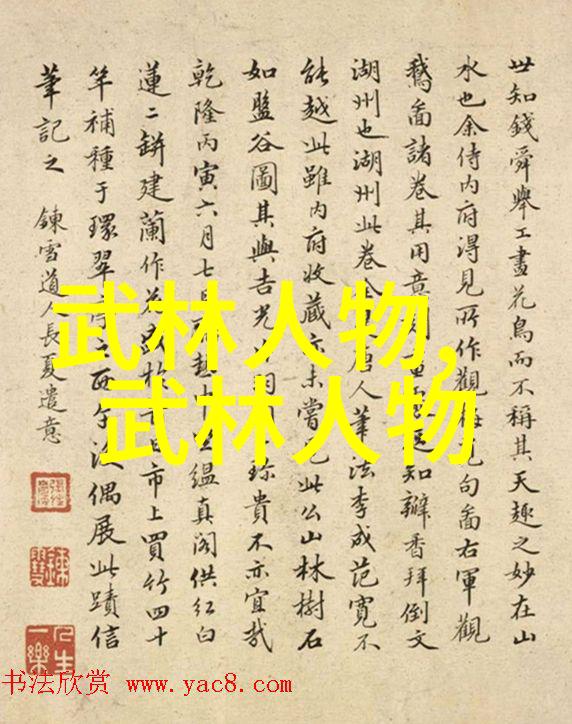 世知錢舜舉工畫花鳥而不稱其天趣之妙在山
水也余侍内府得見所作觀句畵右軍觀
鵝畵諸卷其用意知辦香拜倒文
湖州也湖州此卷人筆法李成范寬不
能越此雖内府收藏亦未嘗見此公山林樹石
如盤谷圖其與吉光珍貴不亦宜哉
乾隆丙寅六月七日緼真閣供紅白
蓮二缾建蘭作花市上買竹四十
竿補種于環翠之西偶展此蹟信
筆記之 鍊雪道人長夏遣意
人生一樂
武林人物,
武林人物
书法欣赏 www.yac8.com